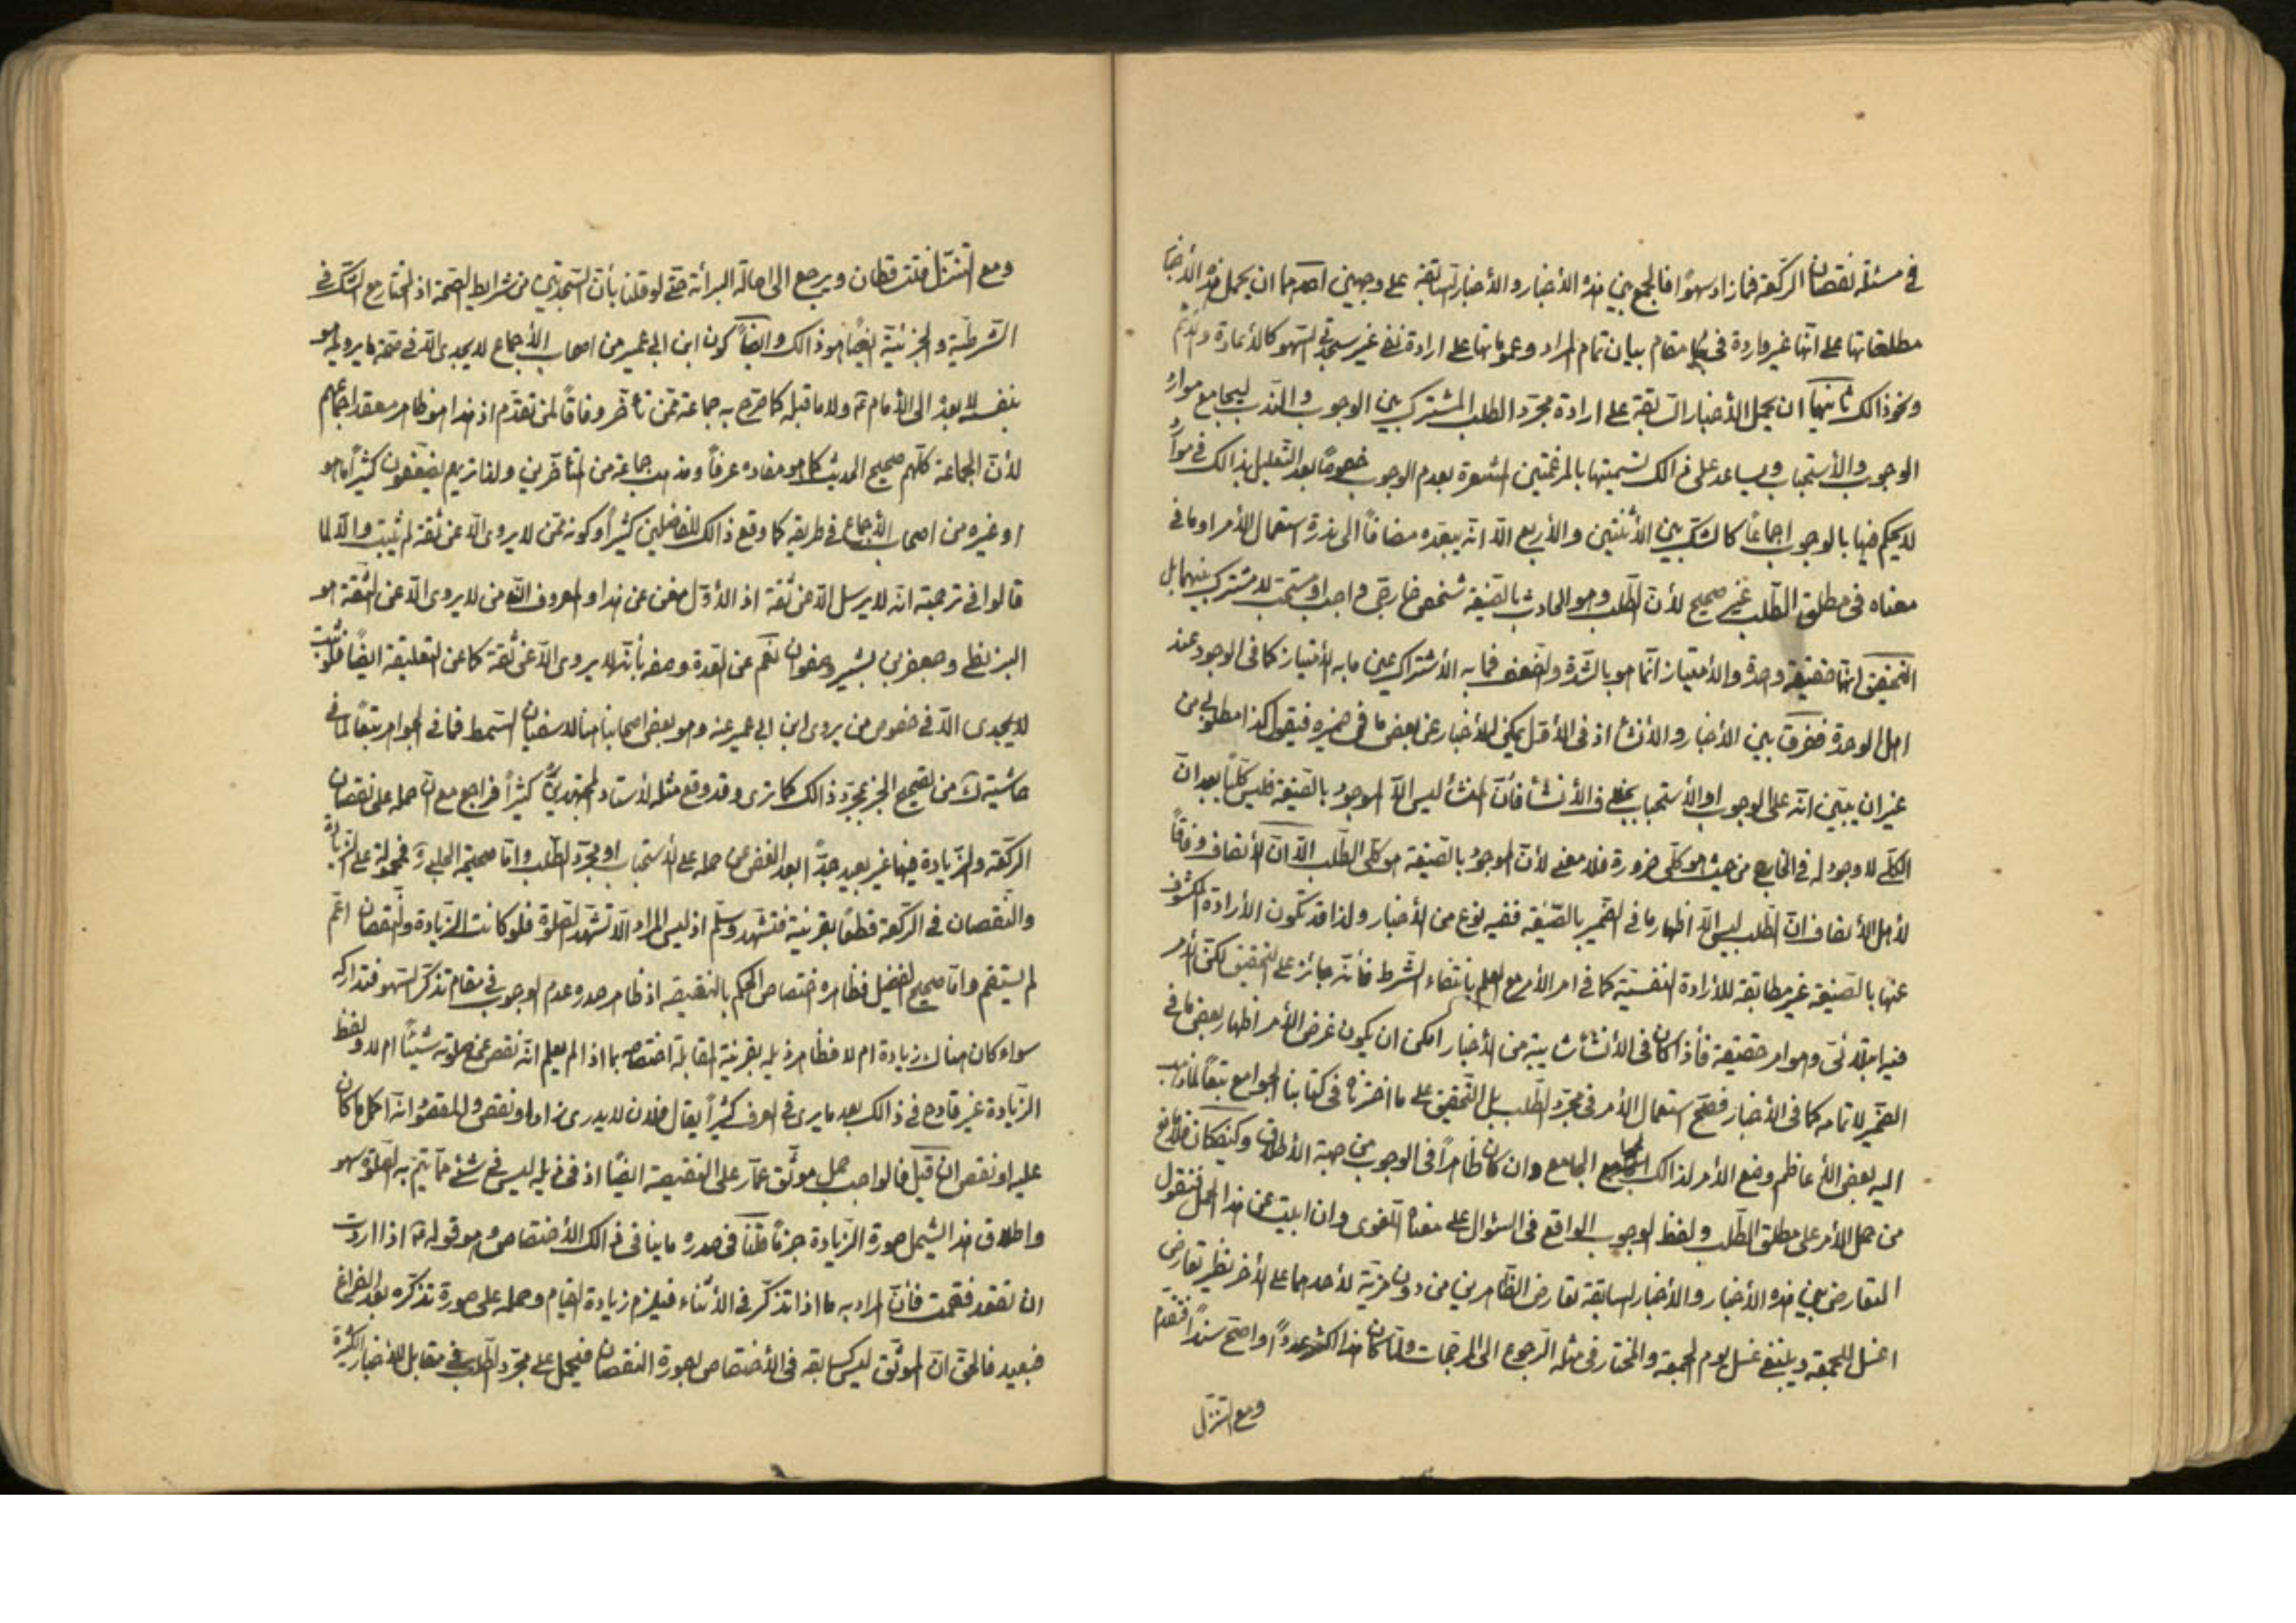 في مسئلة نقصان الركعة فما زاد سهوًا فالجمع بين هذه الأخبار والأخبار السابقة على وجهين احدهما ان يحمل هذه الأخبار
مطلقاتها على انها غير واردة في مقام بيان تمام المراد وعموماتها على ارادة نفي غير سجدتي السهو كالأعادة والأثم
ونحو ذالك ثانيهما ان يحمل الأخبار السابقة على ارادة مجرد الطلب المشترك بين الوجوب والندب ليجامع موارد
الوجوب والأستحباب ويساعد على ذالك تسميتها بالمرغمتين المشعرة بعدم الوجوب خصوصًا بعد التعليل بذالك في موارد
لا يحكم فيها بالوجوب اجماعًا كالشك بين الأثنتين والأربع الا انه يبعده مضافًا الى ندرة استعمال الأمر او ما في
معناه في مطلق الطلب غير صحيح لأن الطلب وهو الحادث بالصيغة شخص خارجي واجب او مستحب لا مشترك بينهما بل
التحقيق انها حقيقة واحدة والأمتياز انما هو بالشدة والضعف فما به الأشتراك عين ما به الأمتياز كما في الوجود عند
اهل الوحدة ففرق بين الأخبار والأنشاء اذ في الأول يمكن الأخبار عن بعض ما في ضميره فيقول كذا مطلوبي من
غير ان يبين انه على الوجوب او الأستحباب بخلاف الأنشاء فأن المنشأ ليس الا الموجود بالصيغة فليس كليًا بعد ان
الكلي لا وجود له في الخارج من حيث هو كلي ضرورة فلا معنى لأن الموجود بالصيغة هو كلي الطلب الا ان الأنصاف وفاقًا
لأهل الأنصاف ان الطلب ليس الا اظهار ما في الضمير بالصيغة ففيه نوع من الأخبار ولذا قد تكون الأرادة المكشوف
عنها بالصيغة غير مطابقة للأرادة النفسية كما في امر الأمر مع العلم بانتفاء الشرط فأنه جائز على التحقيق لكن الأمر
فيه ابتلائي وهو امر حقيقة فأذا كان في الأنشاء شائبة من الأخبار امكن ان يكون غرض الأمر اظهار بعض ما في
الضمير لا تمامه كما في الأخبار فصح استعمال الأمر في مجرد الطلب بل التحقيق على ما اخترناه في كتابنا الجوامع تبعًا لما ذهب
اليه بعض الأعاظم وضع الأمر لذالك الجامع وان كان ظاهرًا في الوجوب من جهة الأطلاق وكيف كان فلا مانع
من حمل الأمر على مطلق الطلب ولفظ الوجوب الواقع في السؤال على معناه اللغوي وان ابيت عن هذا الحمل فنقول
التعارض بين هذه الأخبار والأخبار السابقة تعارض الظاهرين من دون مزية لأحدهما على الأخر نظير تعارض
اغسل للجمعة وينبغي غسل يوم الجمعة والمختار في مثله الرجوع الى المرجحات ولما كان هذا اكثر عددًا واصح سندًا فتقدم
ومع التنزل
ومع التنزل فتتساقطان ويرجع الى اصالة البرائة حتى لو قلنا بأن السجدتين من شرايط الصحة اذ المختار مع الشك في
الشرطية والجزئية ايضًا هو ذالك وايضًا كون ابن ابي عمير من اصحاب الأجماع لا يجدى الا في صحة ما يرويه هو
بنفسه لا بعده الى الأمام ع ولا ما قبله كما صرح به جماعة ممن تأخر وفاقًا لمن تقدم اذ هذا هو ظاهر معقد اجماعهم
لأن الجماعة كلهم صحيح الحديث كما هو مفاده عرفًا ومذهب جماعة من المتأخرين ولذا تريهم يضعفون كثيرًا ما هو
او غيره من اصحاب الأجماع في طريقه كما وقع ذالك للفاضلين كثيرًا وكونه ممن لا يروى الا عن ثقة لم يثبت والا لما
قالوا في ترجمته انه لا يرسل الا عن ثقة اذ الأول مغن عن هذا والمعروف بأنه من لا يروى الا عن الثقة هو
البزنطي وجعفر بن بشير وصفوان نعم عن العدة وصفه بأنه لا يروى الا عن ثقة كما عن التعليقة ايضًا فلو ثبت
لا يجدى الا في خصوص من يروى ابن ابي عمير عنه وهو بعض اصحابنا هنا لا سفيان السمط فما في الجواهر تبعًا لما في
حاشية ك من تصحيح الخبر بمجرد ذالك كما ترى وقد وقع مثله لأستاد المجتهدين كثيرًا فراجع مع ان حمله على نقصان
الركعة والزيادة فيها غير بعيد جدًا بعد الغض عن حمله على الأستحباب او مجرد الطلب واما صحيحة الحلبي فمحمولة على الزيادة
والنقصان في الركعة قطعًا بقرينة فتشهد وسلم اذ ليس المراد الا تشهد الصلوة فلو كانت الزيادة والنقصان اعم
لم يستقم واما صحيح الفضيل فظاهره اختصاص الحكم بالنقيصة اذ ظاهر صدره عدم الوجوب في مقام تذكر السهو فتداركه
سواء كان هناك زيادة ام لا فظاهر ذيله بقرينة المقابلة اختصاصه بما اذا لم يعلم انه نقص من صلوته شيئًا ام لا ولفظ
الزيادة غير قادح في ذالك بعد ما يرى في العرف كثيرًا يقال فلان لا يدرى زاد او نقص والمقصود انه اكمل ما كان
عليه او نقص الخ قيل فالواجب حمل موثق عمار على النقيصة ايضًا اذ في ذيله ليس في شئ مما يتم به الصلوة سهو
واطلاق هذا يشمل صورة الزيادة جزمًا قلنا في صدره ما ينافي ذالك الأختصاص وهو قوله ع اذا اردت
ان تقعد فقمت فأن المراد به ما اذا تذكر في الأثناء فيلزم زيادة القيام وحمله على صورة تذكره بعد الفراغ
فبعيد فالحق ان الموثق ليس كسابقه في الأختصاص بصورة النقصان فيحمل على مجرد الطلب في مقابل الأخبار الكثيرة